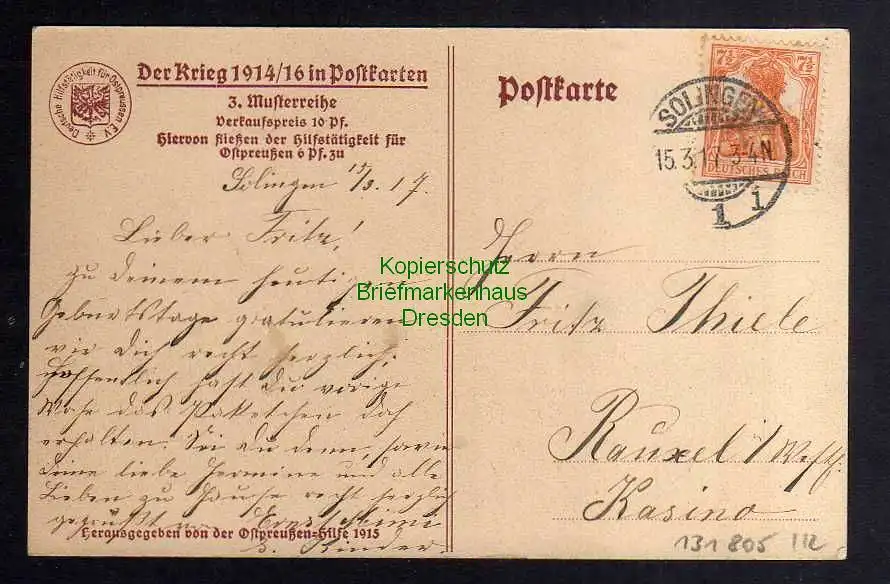 Deutsche Hilfstätigkeit für Ostpreussen E.V.
Der Krieg 1914/16 in Postkarten
3. Musterreihe
Verkaufspreis 10 Pf.
Hiervon fließen der Hilfstätigkeit für
Ostpreußen 6 Pf. zu
Solingen 15/3. 17.
Lieber Fritz!
zu Deinem heutigen
Geburtstage gratulieren
wir Dich recht herzlich.
Hoffentlich hast Du vorige
das Paketchen doch
erhalten. Sei Du denn, sowie
Deine liebe Hermine und alle
Lieben zu Hause recht herzlich
gegrüßt
Kinder.
Herausgegeben von der Ostpreußen-Hilfe 1915
Postkarte
7½ 7½
DEUTSCHES REICH
SOLINGEN
15.3.17 3-4N
1 i
Herrn
Fritz Thiele
Rauxel i/Westf.
Kasino
131 805
Kopierschutz
Briefmarkenhaus
Dresden